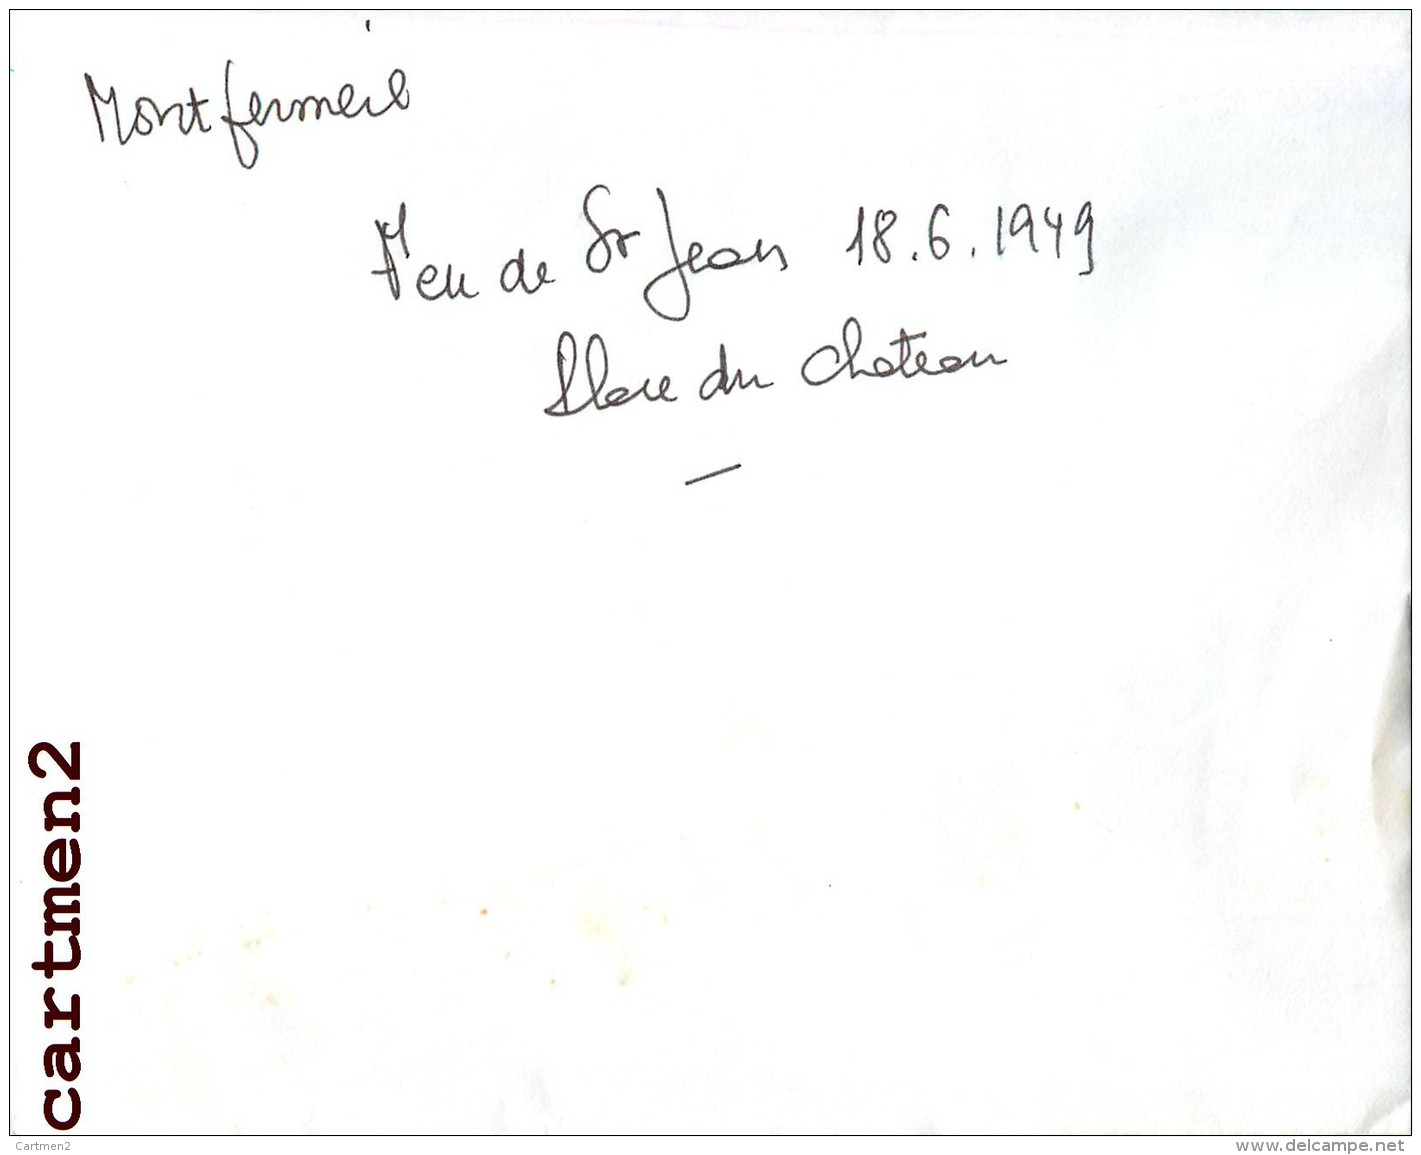 Montfermeil
Feu de St Jean 18.6.1949
Place du Chateau
—
cartmen2
Cartmen2
www.delcampe.net